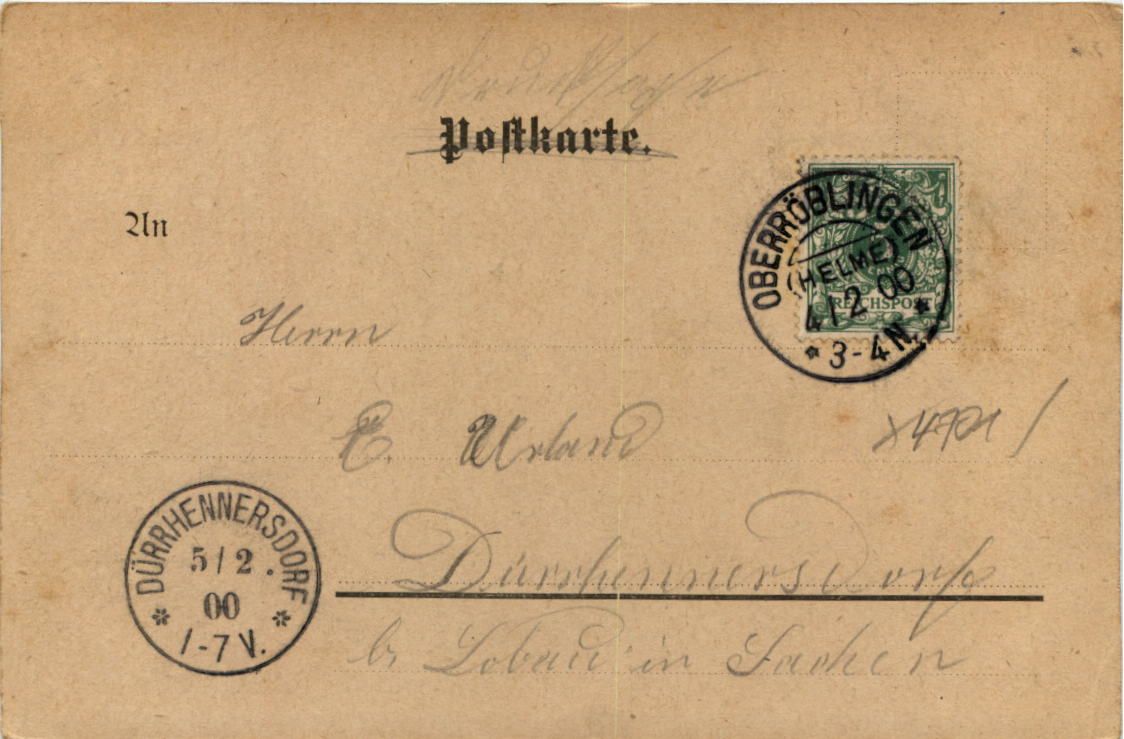 Drucksache
Postkarte.
An
OBERRÖBLINGEN
(HELME)
4/2 00
3-4N.
REICHSPOST
Herrn
E. Urland
DÜRRHENNERSDORF
5/2.
00
1-7V.
Dürrhennersdorf
b. Löbau in Sachsen